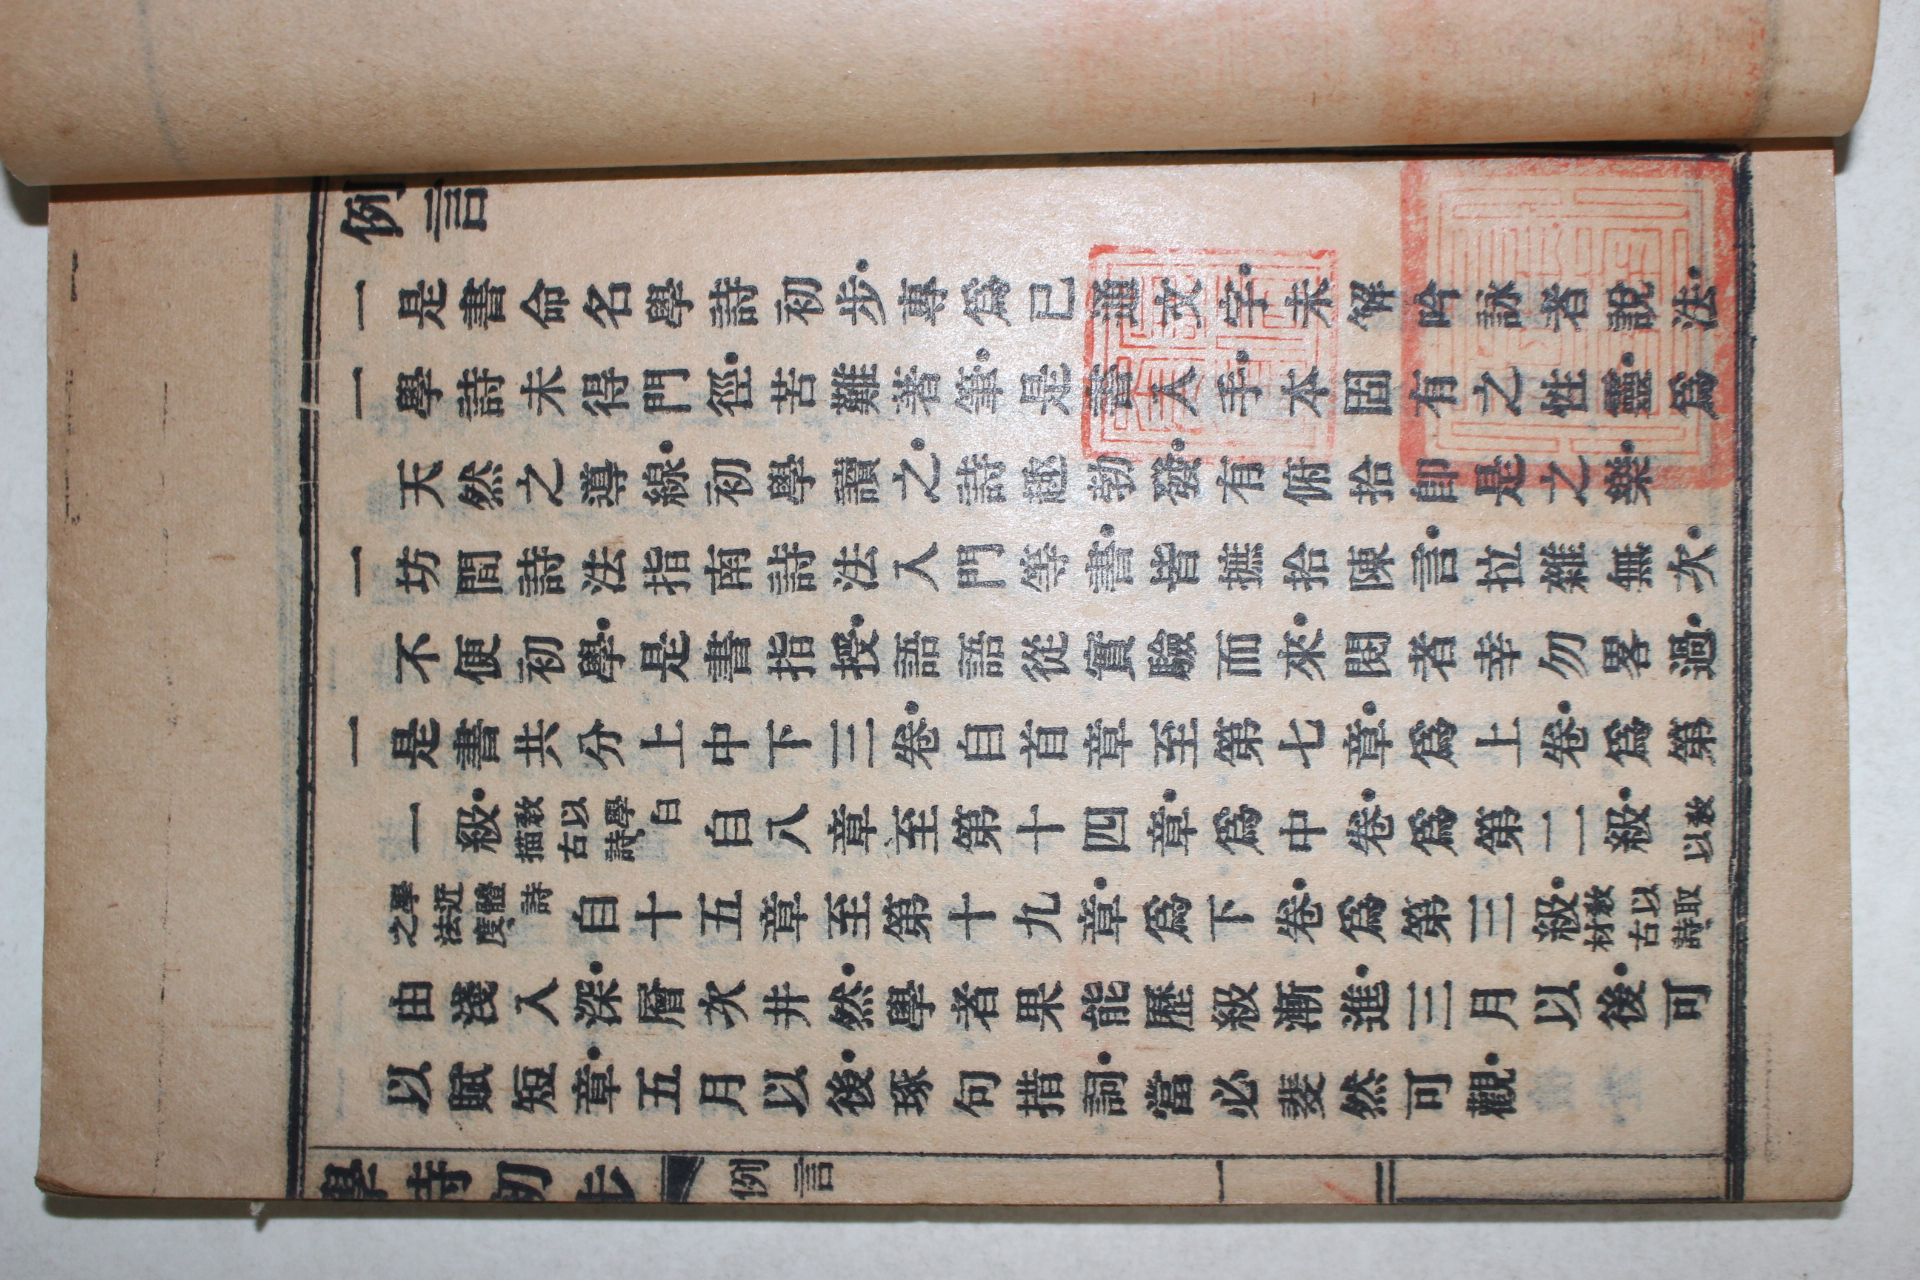 例言
一是書命名學詩初步。專爲已通文字。未解吟詠者說法。
一學詩未得門徑。苦難著筆。是書入手。本固有之性靈。爲
天然之導線。初學讀之。詩趣勃發。有俯拾卽是之樂。
一坊間詩法指南詩法入門等書。皆摭拾陳言。拉雜無次。
不便初學。是書指授。語語從實驗而來。閱者幸勿畧過。
一是書共分上中下三卷。自首章至第七章。爲上卷。爲第
一級。敎以學白描古詩自八章至第十四章。爲中卷。爲第二級。敎以
學近體詩之法度自十五章至第十九章。爲下卷。爲第三級。敎以取材古詩
由淺入深。層次井然。學者果能歷級漸進。三月以後。可
以賦短章。五月以後。琢句措詞。當必斐然可觀。
學詩初步 例言 一